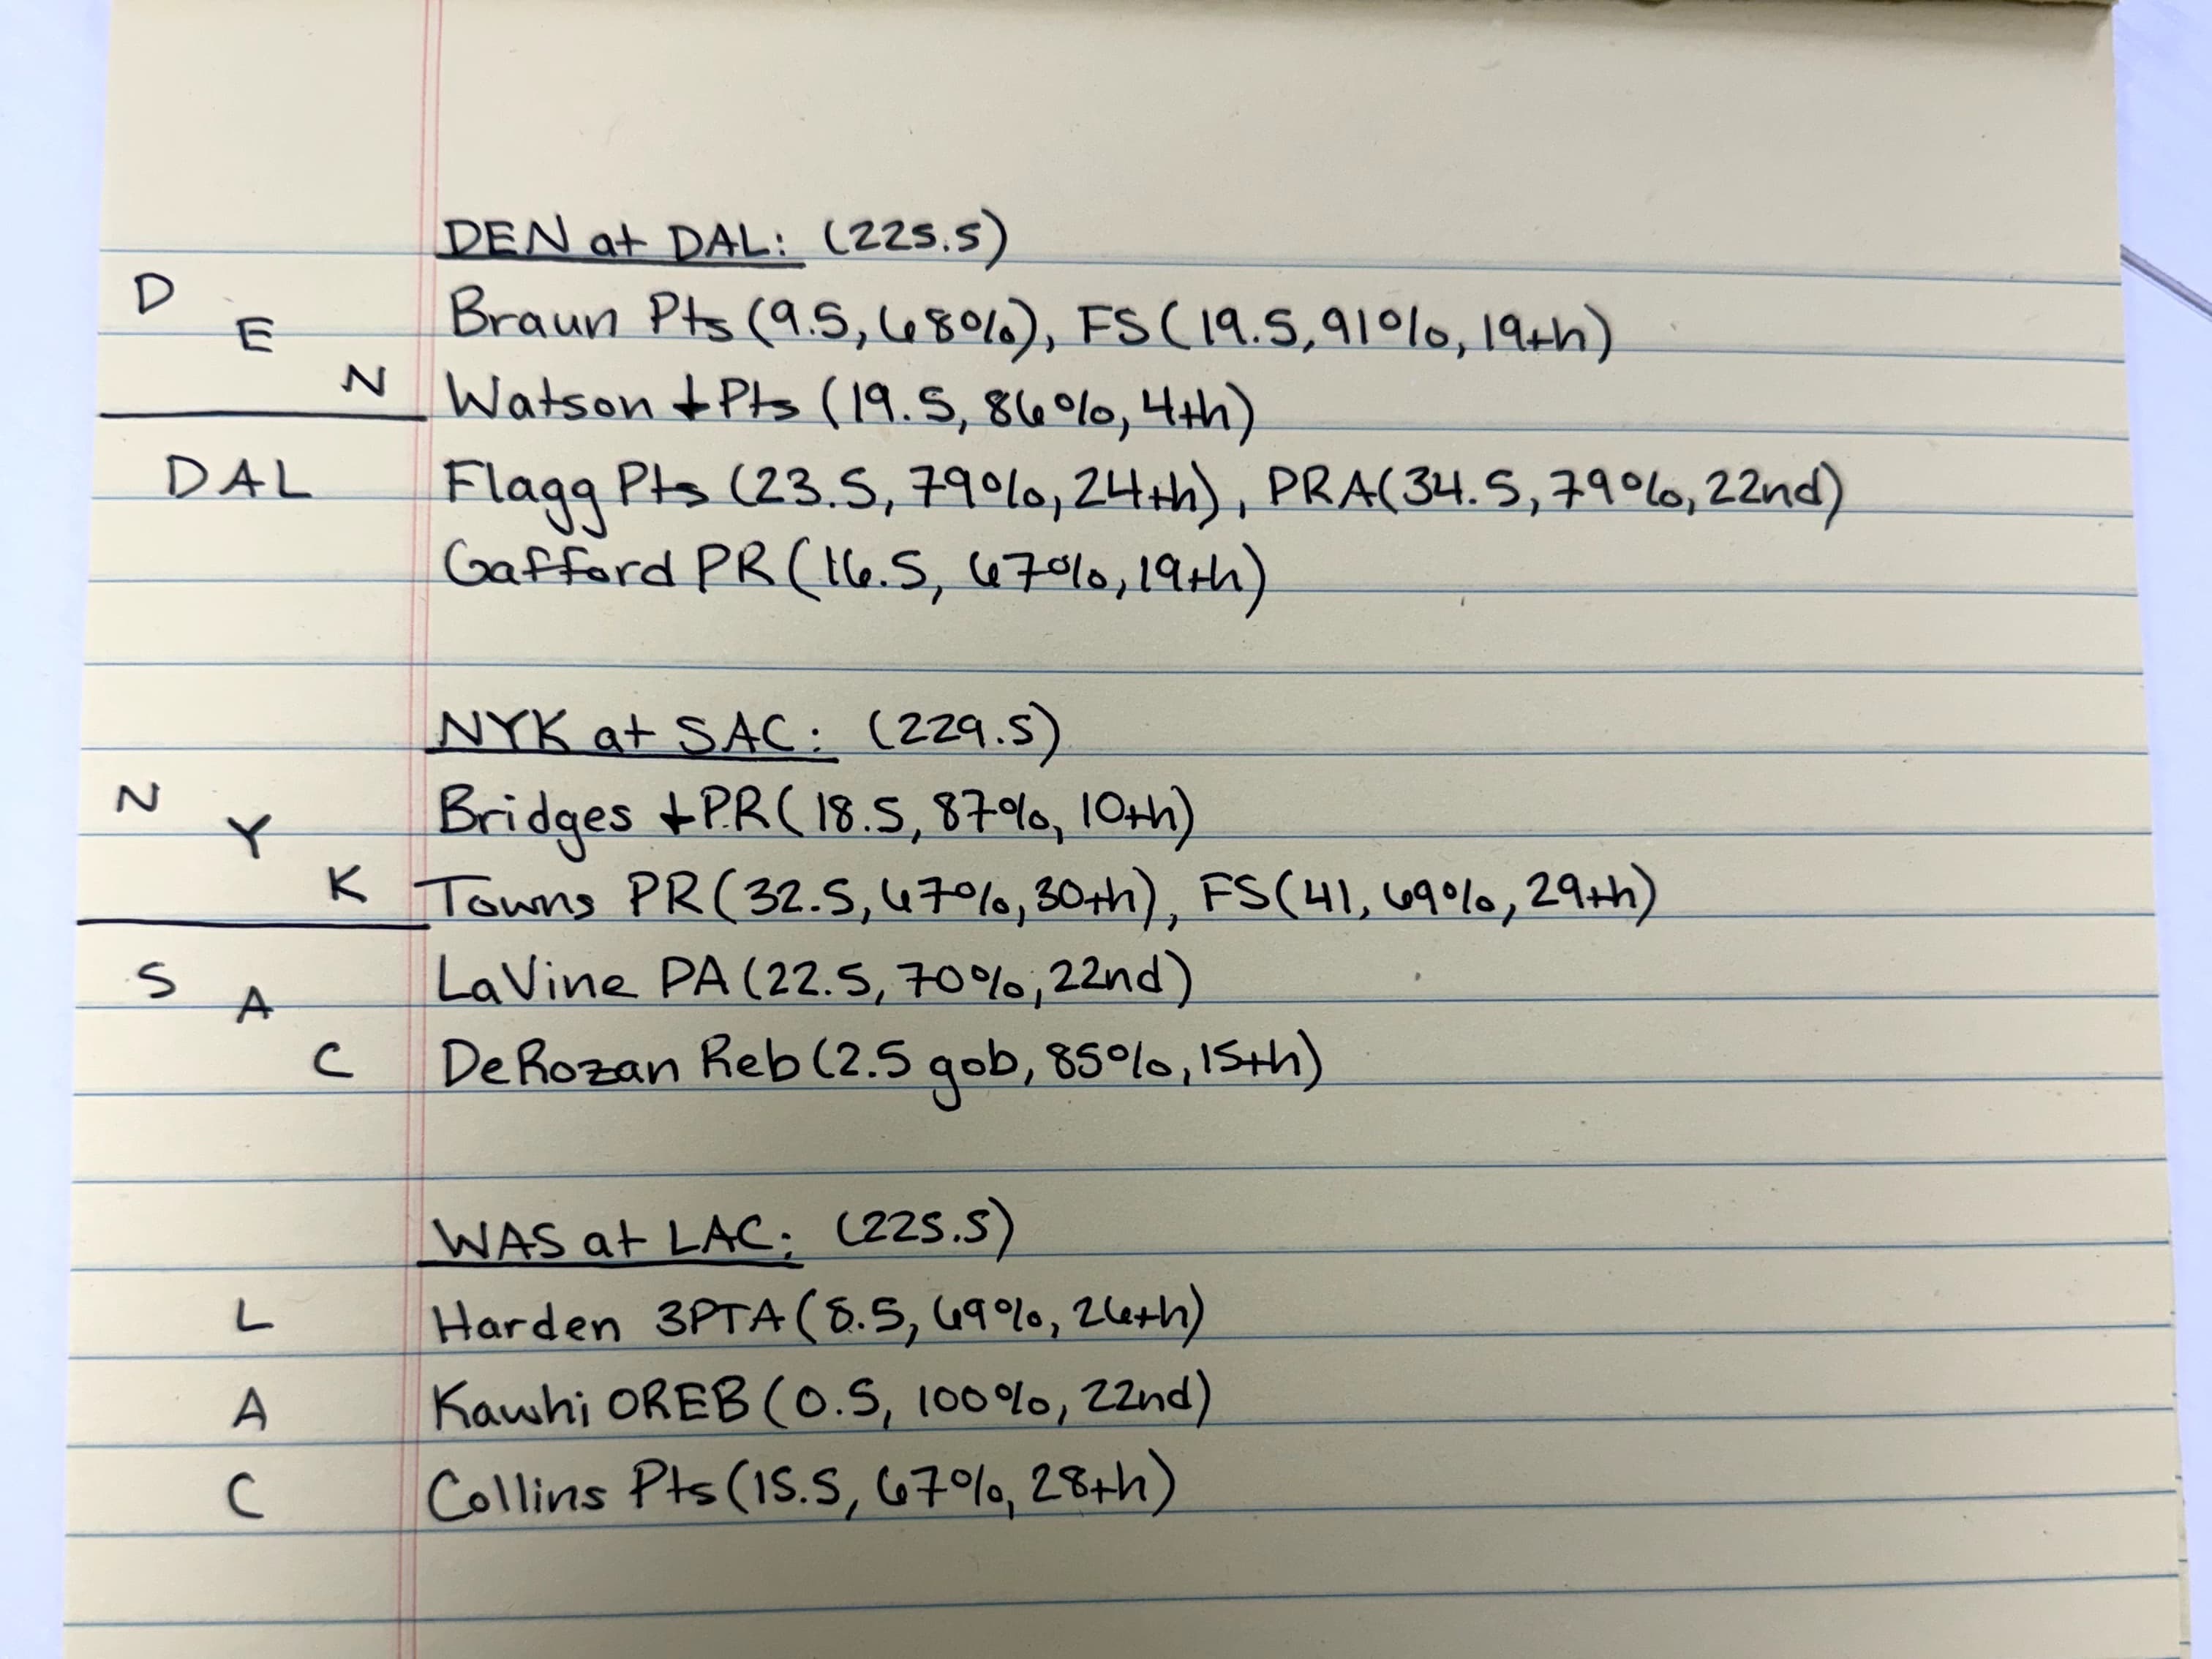 DEN at DAL: (225.5)
D E N
Braun Pts (9.5, 68%), FS (19.5, 91%, 19th)
Watson ↓Pts (19.5, 86%, 4th)
DAL
Flagg Pts (23.5, 79%, 24th), PRA (34.5, 79%, 22nd)
Gafford PR (16.5, 67%, 19th)
NYK at SAC: (229.5)
N Y K
Bridges ↓PR (18.5, 87%, 10th)
Towns PR (32.5, 67%, 30th), FS (41, 69%, 29th)
S A C
LaVine PA (22.5, 70%, 22nd)
DeRozan Reb (2.5 gob, 85%, 15th)
WAS at LAC: (225.5)
L A C
Harden 3PTA (8.5, 69%, 26th)
Kawhi OREB (0.5, 100%, 22nd)
Collins Pts (15.5, 67%, 28th)